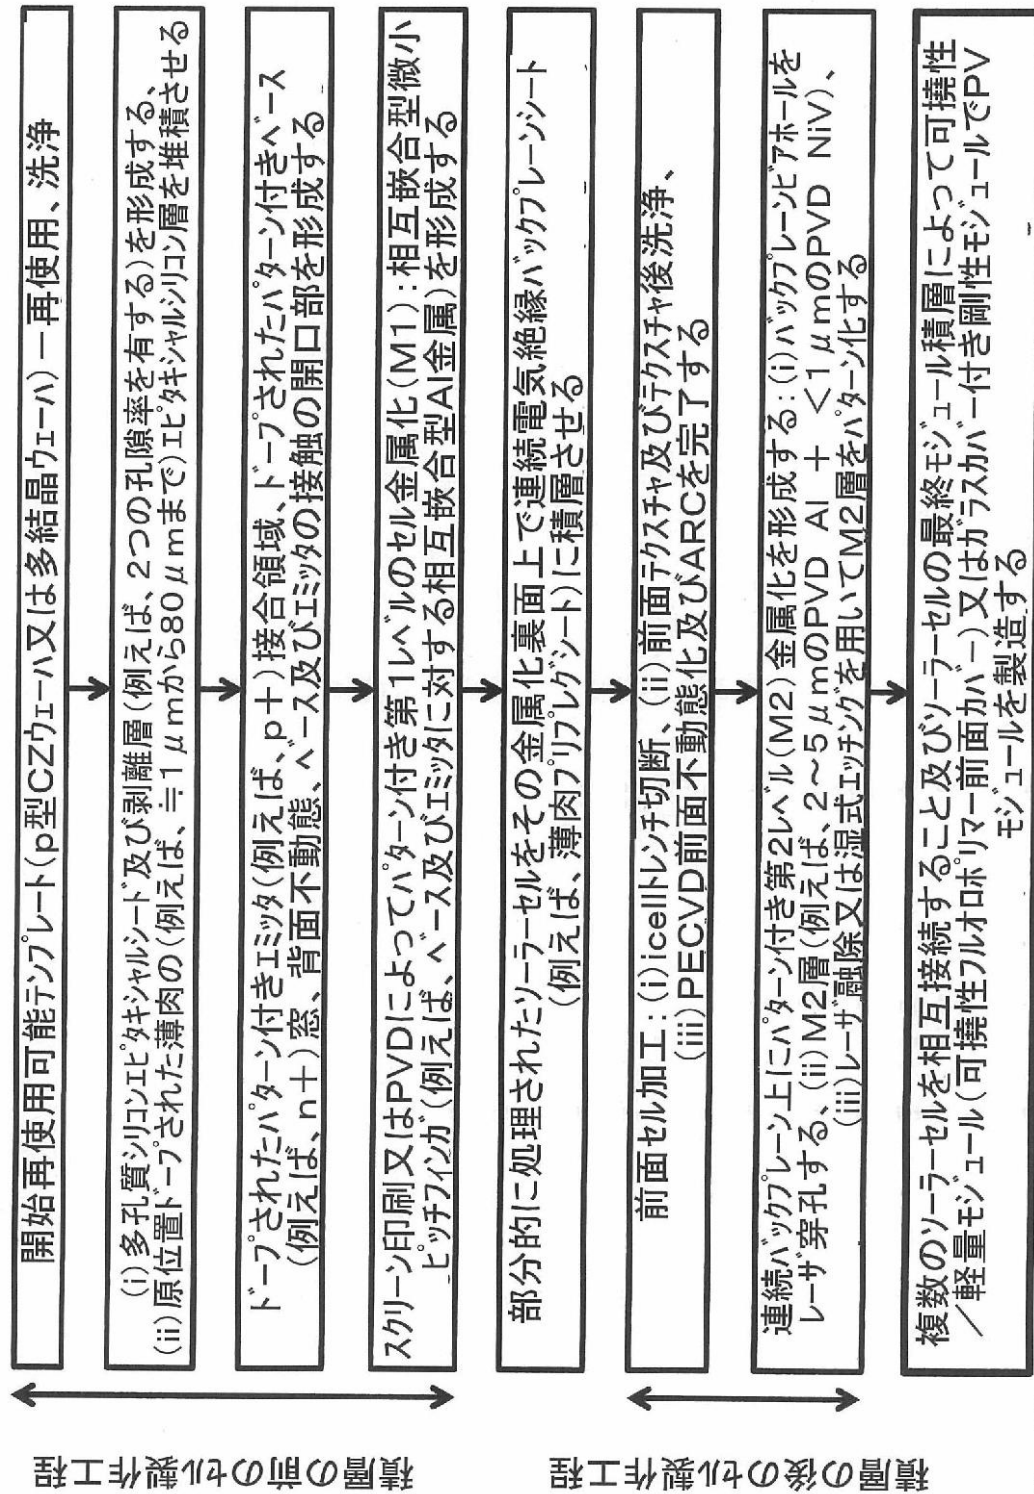 開始再使用可能テンプレート(p型CZウェーハ又は多結晶ウェーハ)－再使用、洗浄
(i)多孔質シリコンエピタキシャルシード及び剥離層(例えば、2つの孔隙率を有する)を形成する、
(ii)原位置ドープされた薄肉の(例えば、≒1μmから80μmまで)エピタキシャルシリコン層を堆積させる
ドープされたパターン付きエミッタ(例えば、p+)接合領域、ドープされたパターン付きベース
(例えば、n+)窓、背面不動態、ベース及びエミッタの接触の開口部を形成する
スクリーン印刷又はPVDによってパターン付き第1レベルのセル金属化(M1):相互嵌合型微小
ピッチフィンガ(例えば、ベース及びエミッタに対する相互嵌合型Al金属)を形成する
部分的に処理されたソーラーセルをその金属化裏面上で連続電気絶縁バックプレーンシート
(例えば、薄肉プリプレグシート)に積層させる
前面セル加工:(i)icellトレンチ切断、(ii)前面テクスチャ及びテクスチャ後洗浄、
(iii)PECVD前面不動態化及びARCを完了する
連続バックプレーン上にパターン付き第2レベル(M2)金属化を形成する:(i)バックプレーンビアホールを
レーザ穿孔する、(ii)M2層(例えば、2～5μmのPVD Al + <1μmのPVD NiV)、
(iii)レーザ融除又は湿式エッチングを用いてM2層をパターン化する
複数のソーラーセルを相互接続すること及びソーラーセルの最終モジュール積層によって可撓性
/軽量モジュール(可撓性フルオロポリマー前面カバー)又はガラスカバー付き剛性モジュールでPV
モジュールを製造する
積層の前のセル製作工程
積層の後のセル製作工程